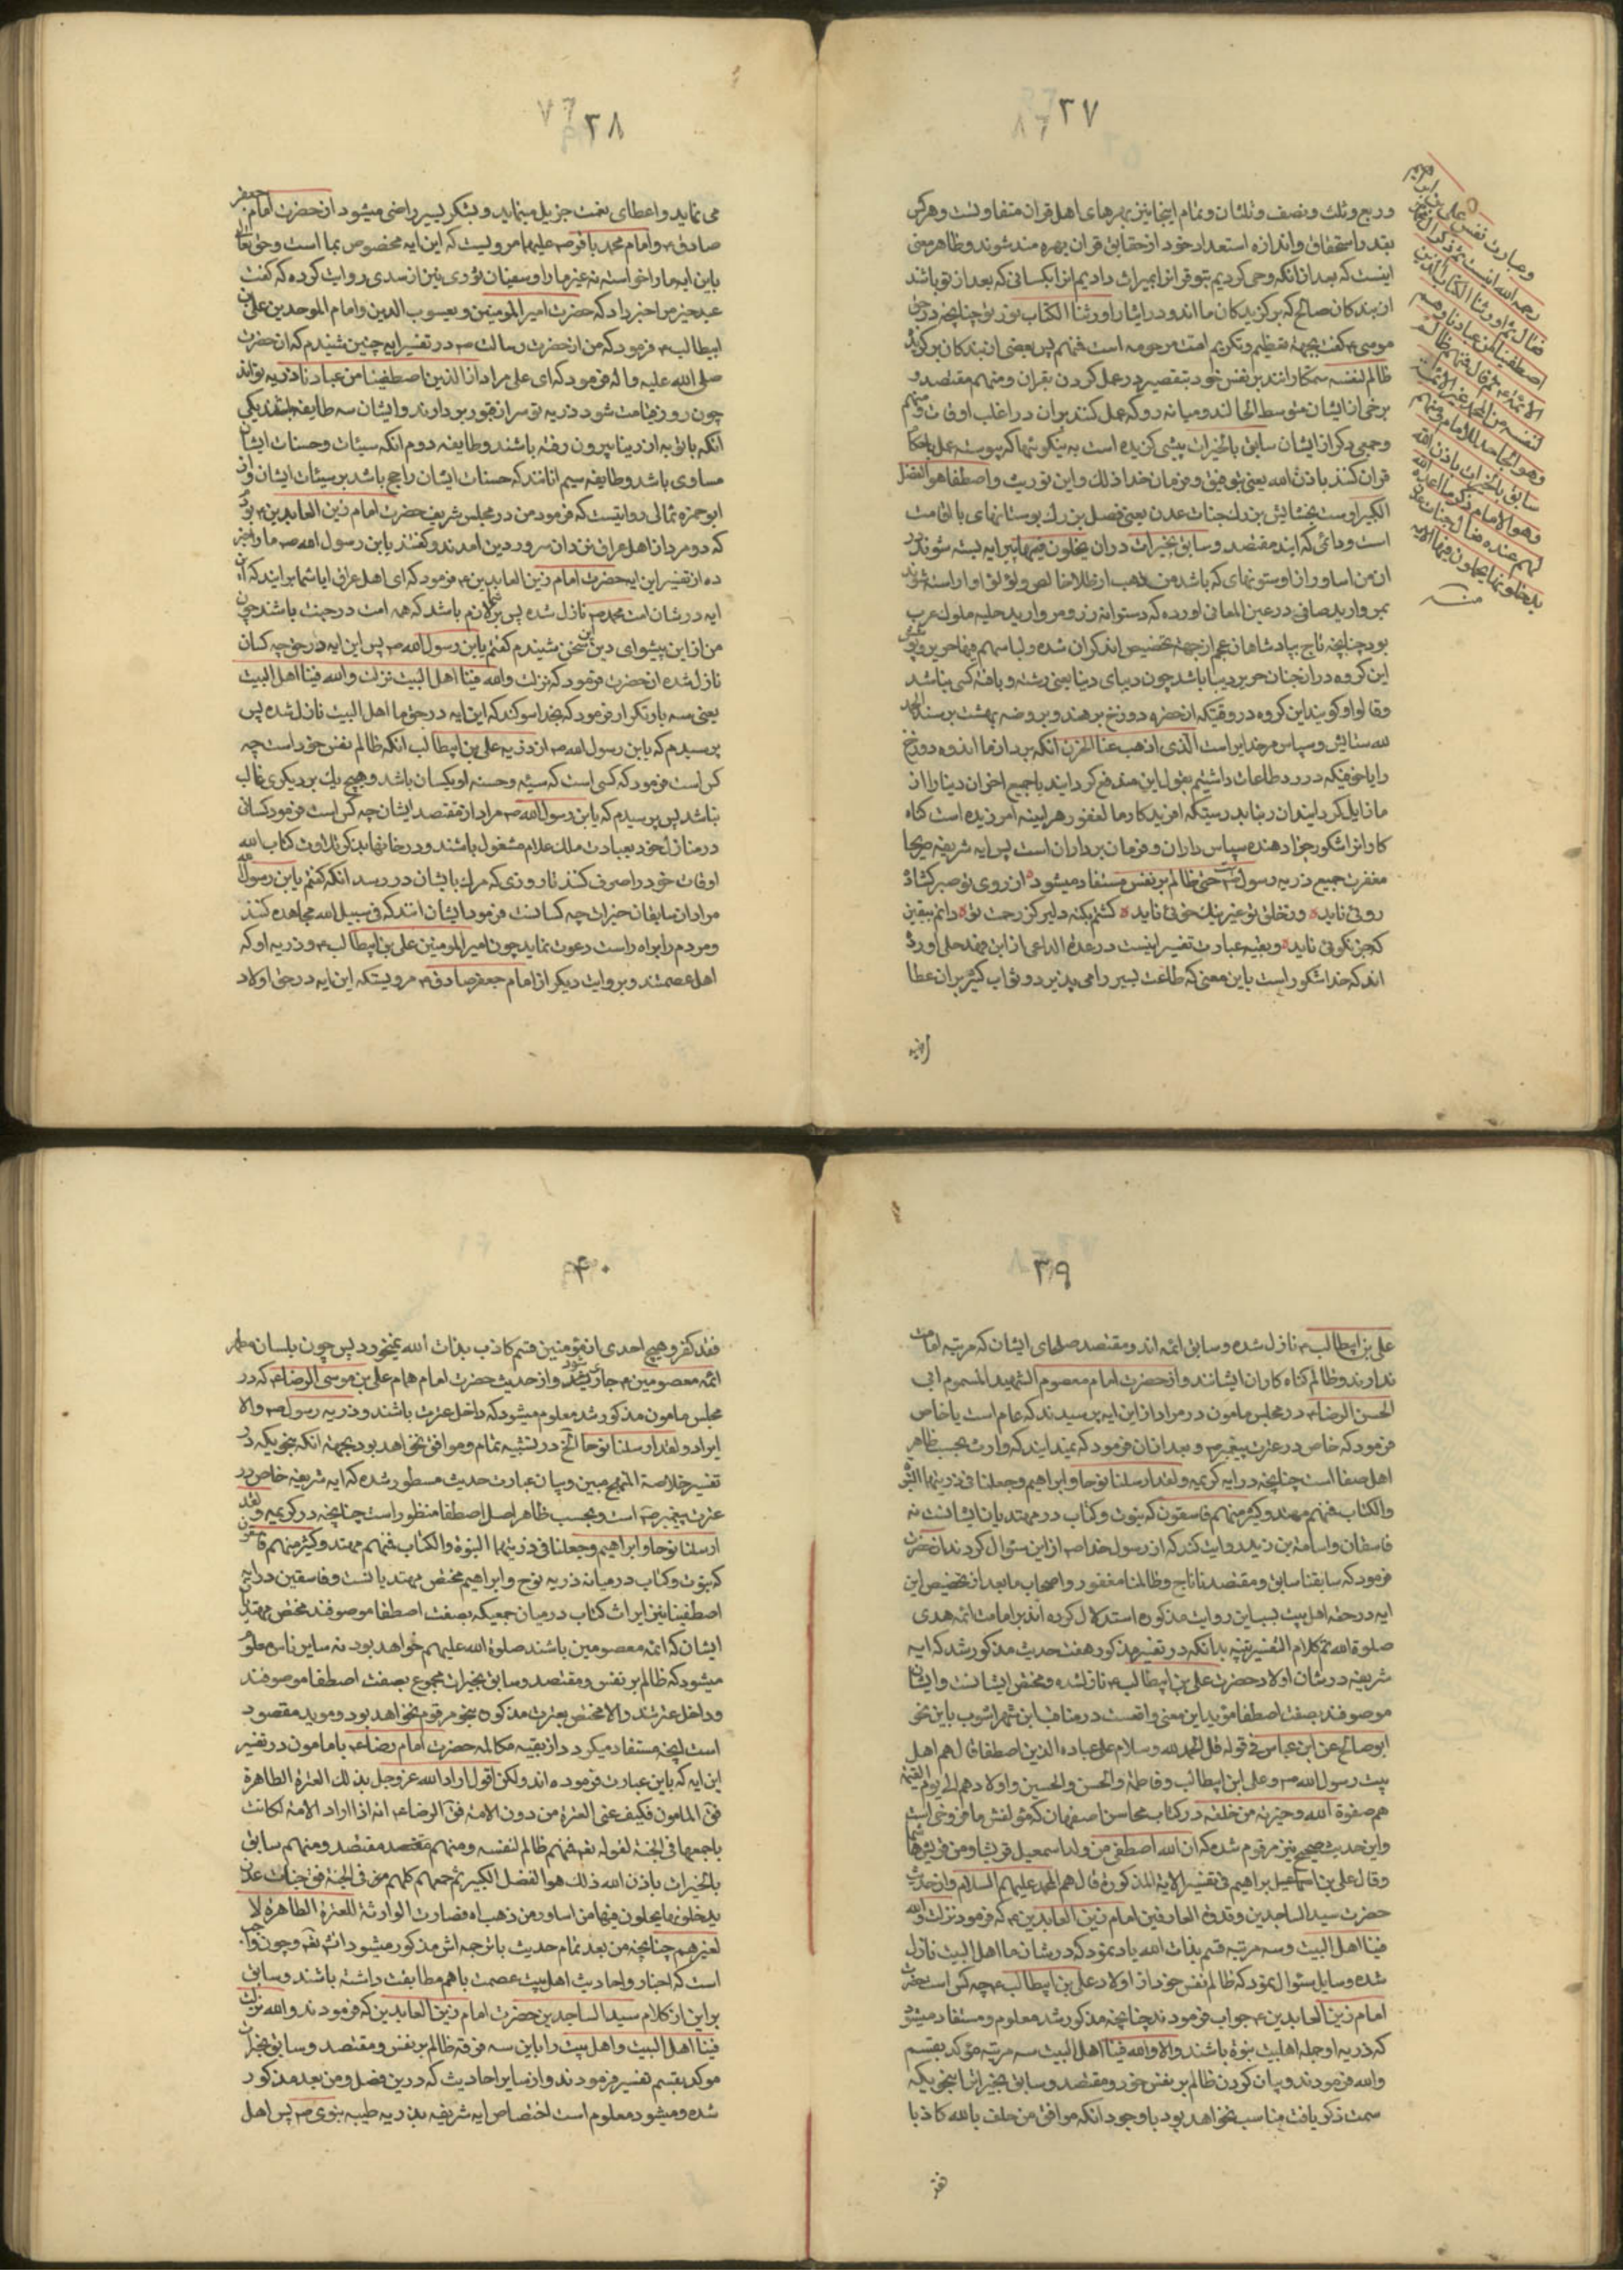 ۳۷
و ربع و ثلث و نصف و ثلثان و تمام اینجا نیز بهرهای اهل قران متفاوتست و هرکس
بقدر استحقاق و اندازه استعداد خود از حقایق قران بهره مند شوند و ظاهر معنی
اینست که بعد از انکه وحی کردیم بتو قرانرا بمیراث دادیم انرا بکسانی که بعد از تو باشد
از بندکان صالح که برکزیدکان ما اند و در ایشار اورثنا الکتاب توریة چنانچه در حق
موسی ع کفت بجهة تعظیم و تکریم امت مرحومه است فمنهم پس بعضی از بندکان برکزیده
ظالم لنفسه ستمکارانند بر نفس خود بتقصیر در عمل کردن بقران و منهم مقتصد و
برخی از ایشان متوسط الحالند و میانه رو که عمل کنند بران در اغلب اوقات و منهم
و جمعی دکر از ایشان سابق بالخیرات پیشی کزیده است به نیکوئیها که پیوسته عمل باحکام
قران کنند باذن الله یعنی بتوفیق و فرمان خدا ذلک و این توریث و اصطفا هو الفضل
الکبیر اوست بخشایش بزرک جنات عدن یعنی فضل بزرک بوستانهای با اقامت
است و دائمی که ایند مقتصد و سابق بخیرات دران یحلون فیها پیرایه بسته شوند در
ان من اساور از اوستونهای که باشد من ذهب از طلا خالص و لؤلؤا و اراسته شوند
بمروارید صافی در عین المعانی اورده که دستوانه زر و مروارید حلیه ملوک عرب
بود چنانچه تاج بپادشاهان عجم ازجهة تخصیص اند کران شده و لباسهم فیها حریر و پوشش
این کروه در ان جنان حریر دیبا باشد چون دیبای دنیا یعنی رشته و بافته کسی نباشد
و قالوا و کویند این کروه در وقتیکه از حفره دوزخ برهند و بروضه بهشت برسند الحمد
لله ستایش و سپاس مر خدایراست الذی اذهب عنا الحزن انکه برد از ما اندوه دوزخ
را یا خوفیکه در رد طاعات داشتیم بقول این مندفع کردایند یا جمیع اخزان دنیا را از
ما زایل کردانید ان ربنا بدرستیکه افریدکار ما لغفور هر اینه امرزنده است کناه
کارانرا شکور جزا دهنده سپاس داران و فرمان برداران است پس ایه شریفه صریحا
مغفرت جمیع ذریه رسول ص حتی ظالم بر نفس مستفاد میشود از روی تو صبر کشاد
روئی ناید وز خلق تو غیر نیک خوئی ناید کشتم بکنه دلیر کز رحمت تو دانم بیقین
که جز نکوئی ناید و بقیه عبارت تفسیر اینست در عدة الداعی از ابن فهد حلی اورده
اند که خدا شکور است باین معنی که طاعت یسیر را می پذیرد و ثواب کثیر بران عطا
و عبارت تفسیر علی بن ابراهیم
رحمه الله اینست ثم ذکر آل محمد
فقال ثم اورثنا الکتاب الذین
اصطفینا من عبادنا و هم
الائمة ع ثم قال فمنهم ظالم
لنفسه من ال محمد غیر الائمة
و هو الجاحد للامام و منهم
سابق بالخیرات باذن الله
و هو الامام ثم ذکر ما اعده الله
لهم عنده فقال جنات عدن
یدخلونها یحلون فیها الایه
منه
۳۸
می نماید و اعطای نعمت جزیل مینماید و بشکر یسیر راضی میشود از حضرت امام جعفر
صادق ع و امام محمد باقر ص علیهما مرویست که این ایه مخصوص بما است و حق تعالی
باین ایه ما را خواسته نه غیر ما را و سفیان ثوری نیز از سدی روایت کرده که کفت
عبد خیر مرا خبر داد که حضرت امیر المومنین و یعسوب الدین و امام الموحدین علی بن
ابیطالب ع فرمود که من از حضرت رسالت ص در تفسیر ایه چنین شنیدم که ان حضرت
صلی الله علیه و اله فرمود که ای علی مراد از الذین اصطفینا من عبادنا ذریه تو اند
چون روز قیامت شود ذریه تو سر از قبور بر دارند و ایشان سه طایفه باشند یکی
انکه با توبه از دنیا بیرون رفته باشند و طایفه دوم انکه سیئات و حسنات ایشان
مساوی باشد و طایفه سیم انانند که حسنات ایشان راجح باشد بر سیئات ایشان و از
ابو حمزه ثمالی روایتست که فرمود من در مجلس شریف حضرت امام زین العابدین ع بودم
که دو مرد از اهل عراق نزد ان سرور دین امدند و کفتند یابن رسول الله ص ما را خبر
ده از تفسیر این ایه حضرت امام زین العابدین ع فرمود که ای اهل عراق ایا شما برایند که این
ایه در شان امت محمد ص نازل شده پس بر شما لازم باشد که همه امت در جنت باشند چون
من از این پیشوای دین این سخن شنیدم کفتم یابن رسول الله ص پس این ایه در حق چه کسان
نازل شده ان حضرت فرمود که نزلت والله فینا اهل البیت نزلت والله فینا اهل البیت
یعنی سه بار تکرار فرمود که بخدا سوکند که این ایه در حق ما اهل البیت نازل شده پس
پرسیدم که یابن رسول الله ص از ذریه علی بن ابیطالب انکه ظالم نفس خود است چه
کس است فرمود که کسی است که سیئه و حسنه او یکسان باشد و هیچ یک بر دیکری غالب
نباشد پس پرسیدم که یابن رسول الله ص مراد از مقتصد ایشان چه کس است فرمود کسانی
در منازل خود بعبادت ملک علام مشغول باشند و در خانها بذکر و تلاوت کتاب الله
اوقات خود را صرف کنند تا روزی که مرک بایشان در رسد انکه کفتم یابن رسول الله
مراد از سابقان خیرات چه کسانند فرمود ایشان انند که فی سبیل الله مجاهده کنند
و مردم را براه راست دعوت نماید چون امیر المومنین علی بن ابیطالب ع و ذریه او که
اهل عصمتند و بروایت دیکر از امام جعفر صادق ع مرویستکه این ایه در حق اولاد
۳۹
علی بن ابیطالب ع نازل شده و سابق ائمه اند و مقتصد صلحای ایشان که مرتبه امامت
ندارند و ظالم کناه کاران ایشانند و از حضرت امام معصوم الشهید المسموم ابی
الحسن الرضا ع در مجلس مامون در مراد از این ایه پرسیدند که عام است یا خاص
فرمود که خاص در عترت پیغمبر ص و بعد از ان فرمود که نمیدانید که وارث بحسب ظاهر
اهل صفا است چنانچه در ایه کریمه و لقد ارسلنا نوحا و ابراهیم و جعلنا فی ذریتهما النبوة
والکتاب فمنهم مهتد و کثیر منهم فاسقون که نبوت و کتاب در مهتدیان ایشانست نه
فاسقان و اسامة بن زید روایت کند که از رسول خدا ص از این سئوال کردند ان حضرت
فرمود که سابقنا سابق و مقتصدنا ناج و ظالمنا مغفور و اصحاب ما بعد از تخصیص این
ایه در حق اهل بیت بسباین روایت مذکوره استدلال کرده اند بر امامت ائمه هدی
صلوة الله تم کلام التفسیر تنبیه بدانکه در تفسیر مذکور هفت حدیث مذکور شد که ایه
شریفه در شان اولاد حضرت علی بن ابیطالب ع نازلشده و مختص ایشانست و ایشان
موصوفند بصفت اصطفا مؤید این معنی واقعست در مناقب ابن شهر اشوب باین نحو
ابو صالح عن ابن عباس فی قوله قل الحمد لله و سلام علی عباده الذین اصطفا قال هم اهل
بیت رسول الله ص و علی ابن ابیطالب و فاطمة والحسن والحسین و اولادهم الی یوم القیمة
هم صفوة الله و خیرته من خلقه در کتاب محاسن اصفهان که مؤلفش ما فروخی است
و این حدیث صحیح نیز مرقوم شده که ان الله اصطفی من ولد اسمعیل قریشا و من قریش هاشما
و قال علی بن ابراهیم فی تفسیر الایة المذکورة قال هم ال محمد علیهم السلام و ان حدیث
حضرت سید الساجدین و قدوة العارفین امام زین العابدین ع که فرمود نزلت والله
فینا اهل البیت و سه مرتبه قسم بذات الله یاد نمود که در شان ما اهل البیت نازل
شده و سایل سئوال نمود که ظالم نفس خود از اولاد علی بن ابیطالب ع چه کس است حضرت
امام زین العابدین ع جواب فرمودند چنانچه مذکور شد معلوم و مستفاد میشود
که ذریه او جمله اهلبیت نبوة باشند والا والله فینا اهل البیت سه مرتبه مؤکد بقسم
والله فرمودند و بیان کردن ظالم بر نفس خود و مقتصد و سابق بخیراترا بنحویکه
سمت ذکر یافت مناسب نخواهد بود با وجود انکه موافق من حلف بالله کاذبا
فقد
۴۰
فقد کفر و هیچ احدی از مؤمنین قسم کاذب بذات الله نمیخورد پس چون بلسان مطهر
ائمه معصومین ع جاری شود و از حدیث حضرت امام همام علی بن موسی الرضا ع که در
مجلس مامون مذکور شد معلوم میشود که داخل عترت باشند و ذریه رسول ص والا
ایراد و لقد ارسلنا نوحا الخ در تشبیه تمام و موافق نخواهد بود بجهة انکه بنحویکه در
تفسیر خلاصة المنهج مبین و بیان عبارت حدیث مسطور شده که ایه شریفه خاص در
عترت پیغمبر ص است و بحسب ظاهر اصل اصطفا منظور است چنانچه در کریمه و لقد
ارسلنا نوحا و ابراهیم و جعلنا فی ذریتهما النبوة والکتاب فمنهم مهتد و کثیر منهم فاسقون
که نبوت و کتاب در میانه ذریه نوح و ابراهیم مختص مهتدیانست و فاسقین در ایه
اصطفینا نیز ایراث کتاب درمیان جمعیکه بصفت اصطفا موصوفند مختص مهتدیان
ایشان که ائمه معصومین باشند صلوة الله علیهم خواهد بود نه سایر ناس معلوم
میشود که ظالم بر نفس و مقتصد و سابق بخیرات مجموع بصفت اصطفا موصوفند
و داخل عترتند والا مختص بعترت مذکوره بنحو مرقوم نخواهد بود و موید مقصود
است انچه مستفاد میکردد از بقیه مکالمه حضرت امام رضا ع با مامون در تفسیر
این ایه که باین عبارت فرموده اند ولکن اقول اراد الله عز و جل بذلک العترة الطاهرة
فق المامون فکیف عنی العترة من دون الامة فق الرضا ع انه اذا اراد الامة لکانت
باجمعها فی الجنة لقوله تع فمنهم ظالم لنفسه و منهم مقتصد و منهم سابق
بالخیرات باذن الله ذلک هو الفضل الکبیر ثم جمعهم کلهم فی الجنة فق جنات عدن
یدخلونها یحلون فیها من اساور من ذهب اه فصارت الوارثة للعترة الطاهرة لا
لغیرهم چنانچه من بعد تمام حدیث با ترجمه اش مذکور میشود انش تع و چون واجب
است که اخبار و احادیث اهل بیت عصمت باهم مطابقت داشته باشند و سابق
بر این از کلام سید الساجدین حضرت امام زین العابدین که فرمودند والله نزلت
فینا اهل البیت و اهل بیت را باین سه فرقه ظالم بر نفس و مقتصد و سابق بخیرات
موکد بقسم تفسیر فرمودند و از سایر احادیث که درین فصل و من بعد مذکور
شده و میشود معلوم است اختصاص ایه شریفه بذریه طیبه نبوی ص پس اهل